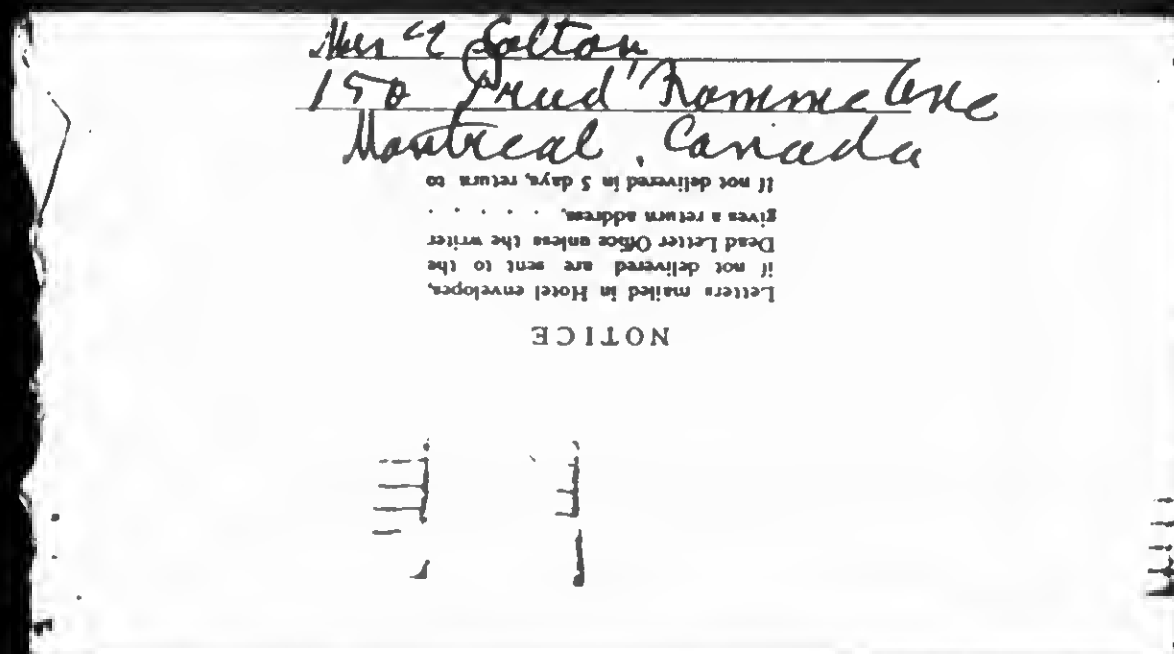 Salton
150 Prud'homme Ave
Montreal, Canada
NOTICE
Letters mailed in Hotel envelopes,
if not delivered are sent to the
Dead Letter Office unless the writer
gives a return address. . . . . .
If not delivered in 5 days, return to